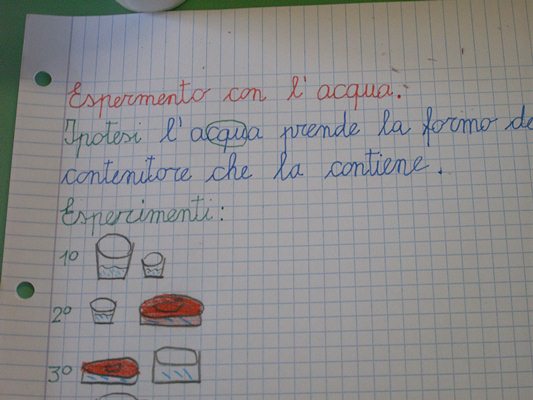 Espermento con l'acqua.
Ipotesi l'acqua prende la formo de
contenitore che la contiene.
Esperimenti:
1º
2º
3º